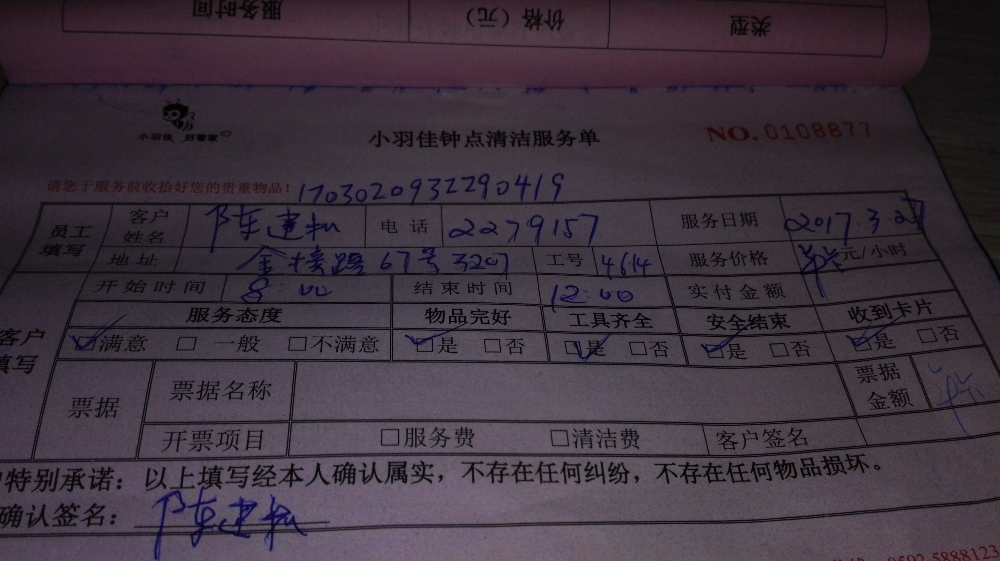 类型 价格（元） 服务时间
小羽佳 好管家
小羽佳钟点清洁服务单 NO. 0108877
请您于服务前收拾好您的贵重物品! 170302093229 0419
员工填写 客户姓名 陈建 电话 2279157 服务日期 2017.3.27
地址 67号3207 工号 4614 服务价格 元/小时
开始时间 8:00 结束时间 12:00 实付金额
客户填写 服务态度 物品完好 工具齐全 安全结束 收到卡片
☑满意 □一般 □不满意 ☑是 □否 ☑是 □否 ☑是 □否 ☑是 □否
票据 票据名称 票据金额
开票项目 □服务费 □清洁费 客户签名
特别承诺：以上填写经本人确认属实，不存在任何纠纷，不存在任何物品损坏。
确认签名： 陈建
0592-5888123